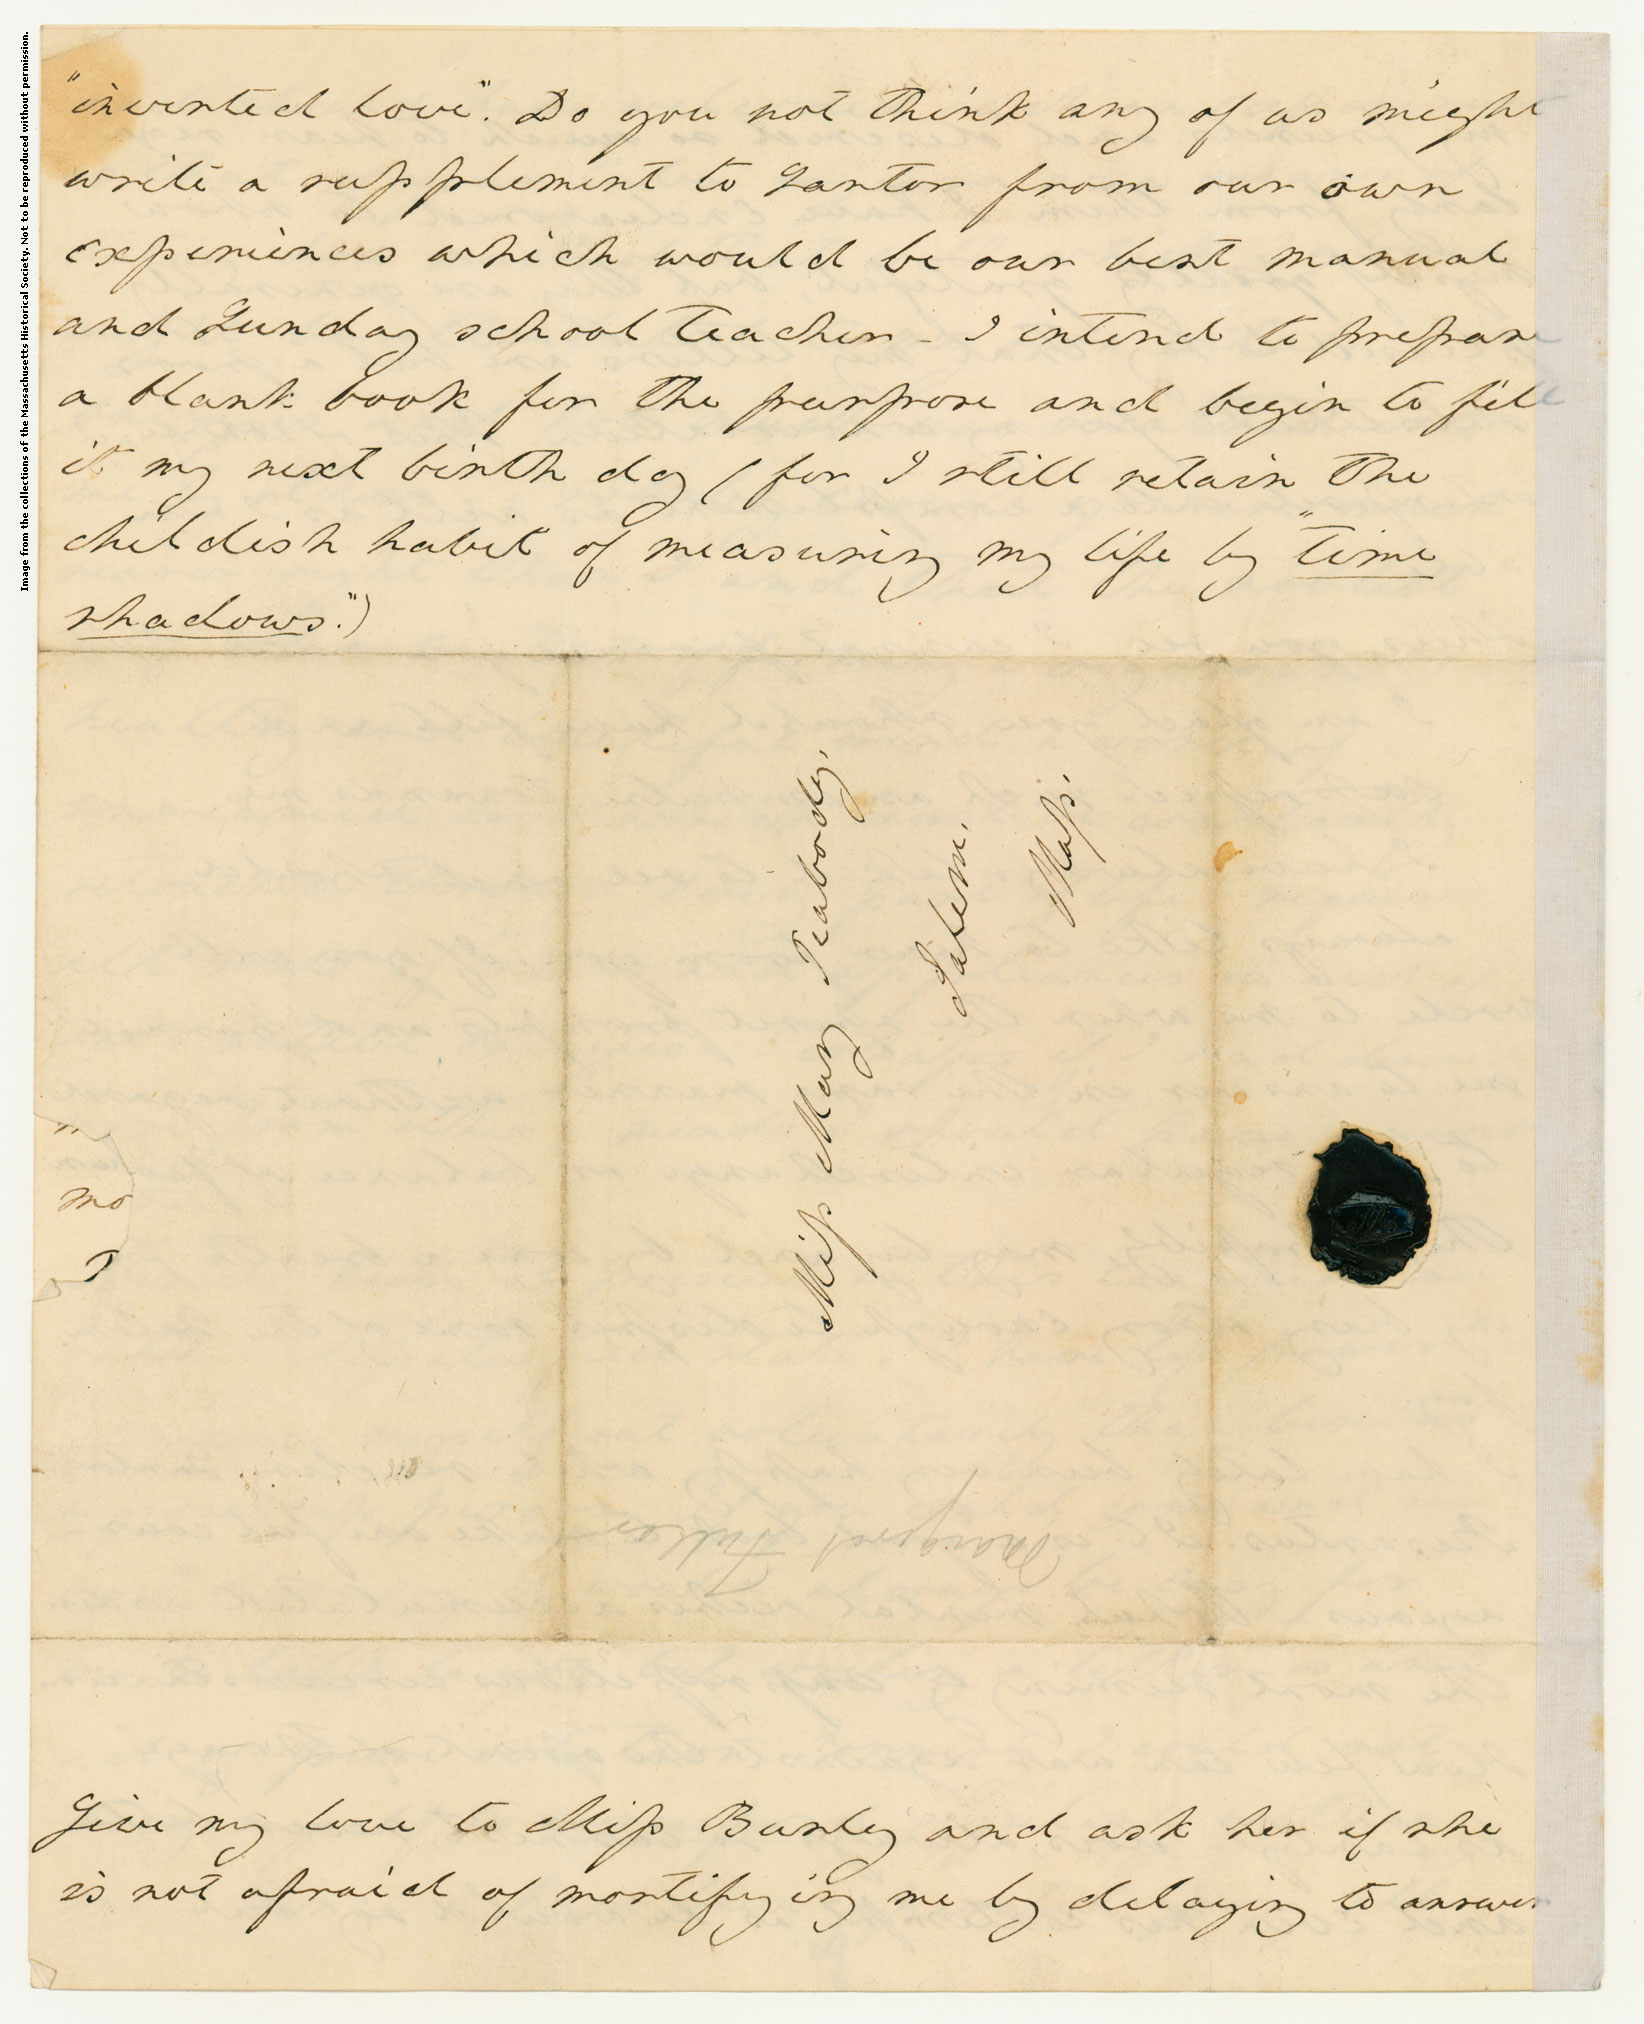 "inverted love". Do you not think any of us might
write a supplement to Sartor from our own
experiences which would be our best manual
and Sunday school teacher - I intend to prepare
a blank book for the purpose and begin to fill
it my next birth day (for I still retain the
childish habit of measuring my life by "time
shadows".)
Miss Mary Peabody,
Salem,
Mass.
mo
Margaret Fuller
Give my love to Miss Burley and ask her if she
is not afraid of mortifying me by delaying to answer
Image from the collections of the Massachusetts Historical Society. Not to be reproduced without permission.